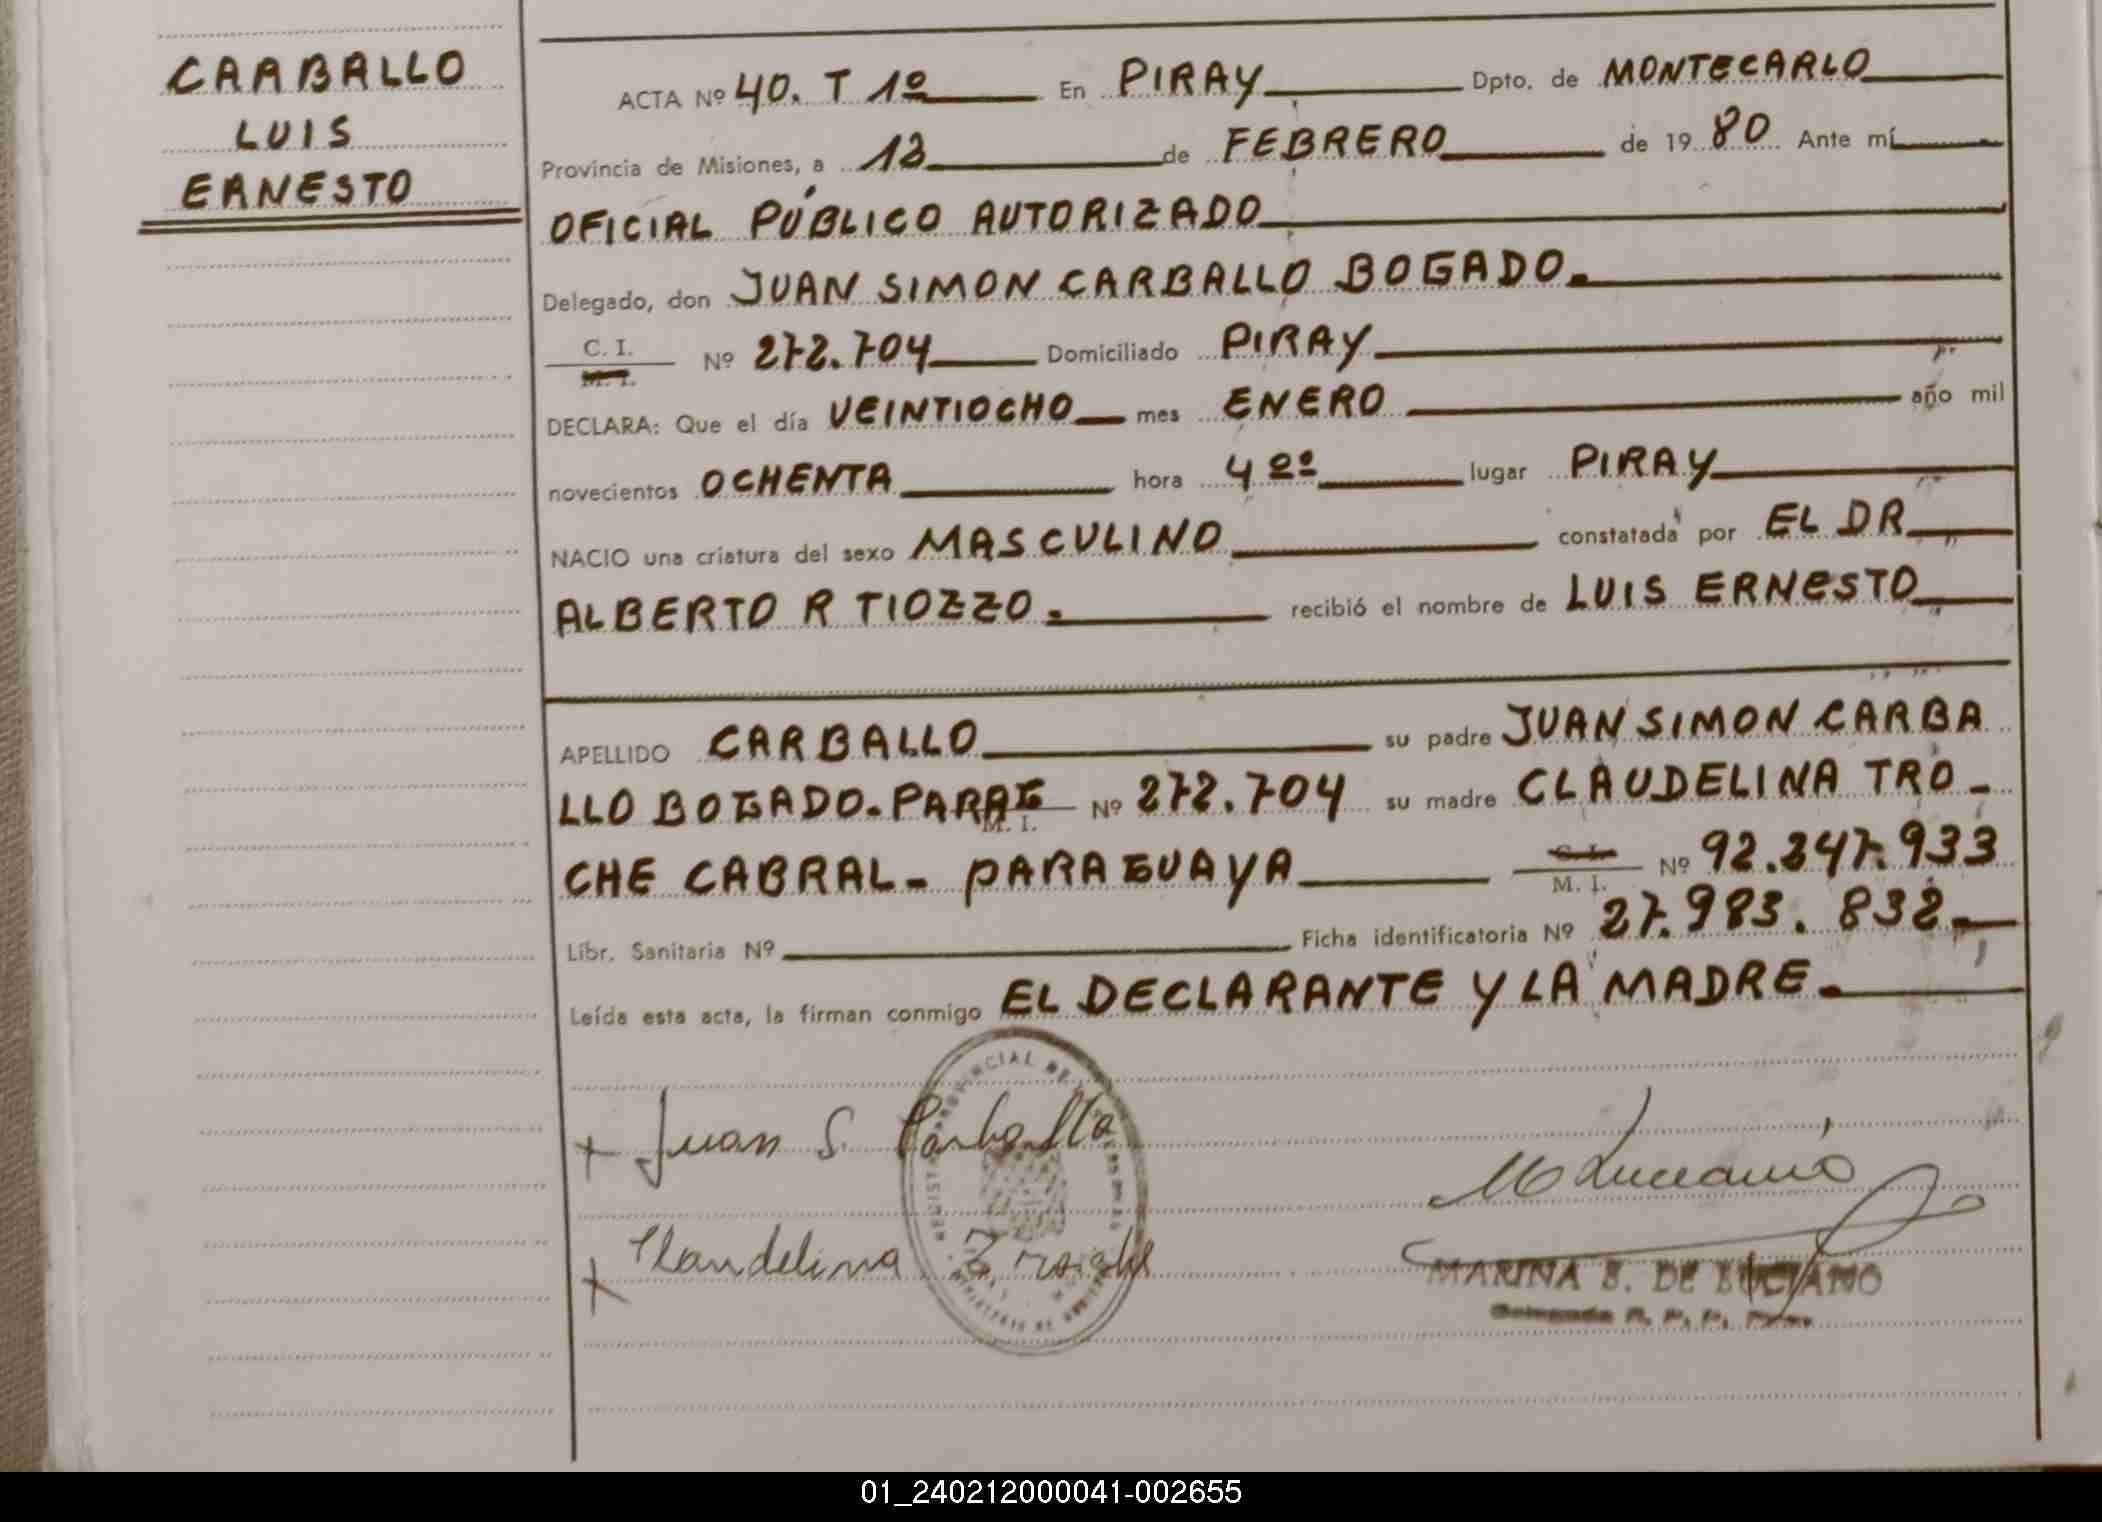 CARBALLO
LUIS
ERNESTO
ACTA Nº 40. T 1º En PIRAY Dpto. de MONTECARLO
Provincia de Misiones, a 13 de FEBRERO de 1980 Ante mí
OFICIAL PÚBLICO AUTORIZADO
Delegado, don JUAN SIMON CARBALLO BOGADO.
C. I.
M. I. Nº 272.704 Domiciliado PIRAY
DECLARA: Que el día VEINTIOCHO mes ENERO año mil
novecientos OCHENTA hora 4 00 lugar PIRAY
NACIO una criatura del sexo MASCULINO constatada por EL DR
ALBERTO R TIOZZO. recibió el nombre de LUIS ERNESTO
APELLIDO CARBALLO su padre JUAN SIMON CARBA
LLO BOGADO-PARAG M. I. Nº 272.704 su madre CLAUDELINA TRO-
CHE CABRAL- PARAGUAYA C. I. M. I. Nº 92.247.933
Libr. Sanitaria Nº Ficha identificatoria Nº 27.983.832
Leída esta acta, la firman conmigo EL DECLARANTE Y LA MADRE.
+ Juan S. Carballo
+ Claudelina
M Luciano
MARINA S. DE LUCIANO
01_240212000041-002655